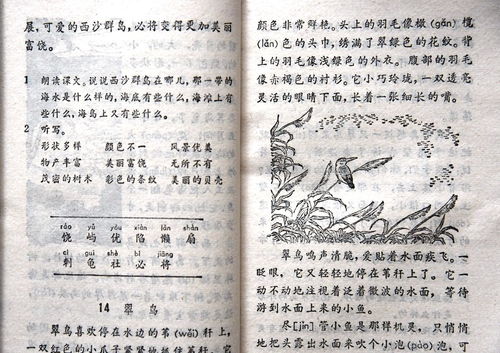 展，可爱的西沙群岛，必将变得更加美丽
富饶。
1 朗读课文，说说西沙群岛在哪儿，那一带的
海水是什么样的，海底有些什么，海滩上有
些什么，海岛上又有些什么。
2 听写。
形状多样 颜色不一 风景优美
物产丰富 美丽富饶 无所不有
茂密的树木 彩色的条纹 美丽的贝壳
ráo yǔ yōu xiàn lǎn shān
饶 屿 优 陷 懒 扇
cì guī shè bì jiāng
刺 龟 社 必 将
14 翠鸟
翠鸟喜欢停在水边的苇(wěi)秆上，
一双红色的小爪子紧紧地抓住苇秆。它
颜色非常鲜艳。头上的羽毛像橄(gǎn)榄
(lǎn)色的头巾，绣满了翠绿色的花纹。背
上的羽毛像浅绿色的外衣。腹部的羽毛
像赤褐色的衬衫。它小巧玲珑，一双透亮
灵活的眼睛下面，长着一张细长的嘴。
翠鸟鸣声清脆，爱贴着水面疾飞。一
眨眼，它又轻轻地停在苇秆上了。它一
动不动地注视着泛着微波的水面，等待
游到水面上来的小鱼。
尽[jǐn]管小鱼是那样机灵，只悄悄
地把头露出水面来吹个小泡(pào)泡，可